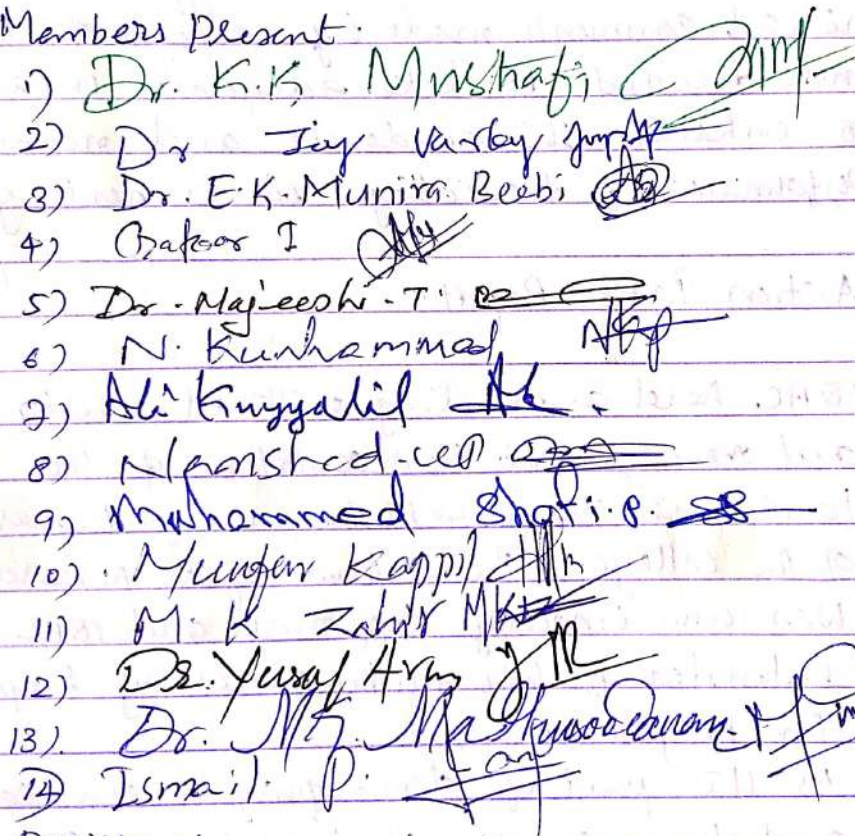 Members Present:
1) Dr. K.K Mustafa,
2) Dr Jay Varley
3) Dr. E.K. Munira Beebi
4) Gafoor I
5) Dr. Majeesh. T
6) N. Kunhammed
7) Ali Kuyyalil
8) Naushad. VP
9) Muhammed Shafi. P.
10) Kappil
11) M. K Zahir
12) Dr. Yusaf
13). Dr. M.G. Madhusoodanan
14) Ismail. P.